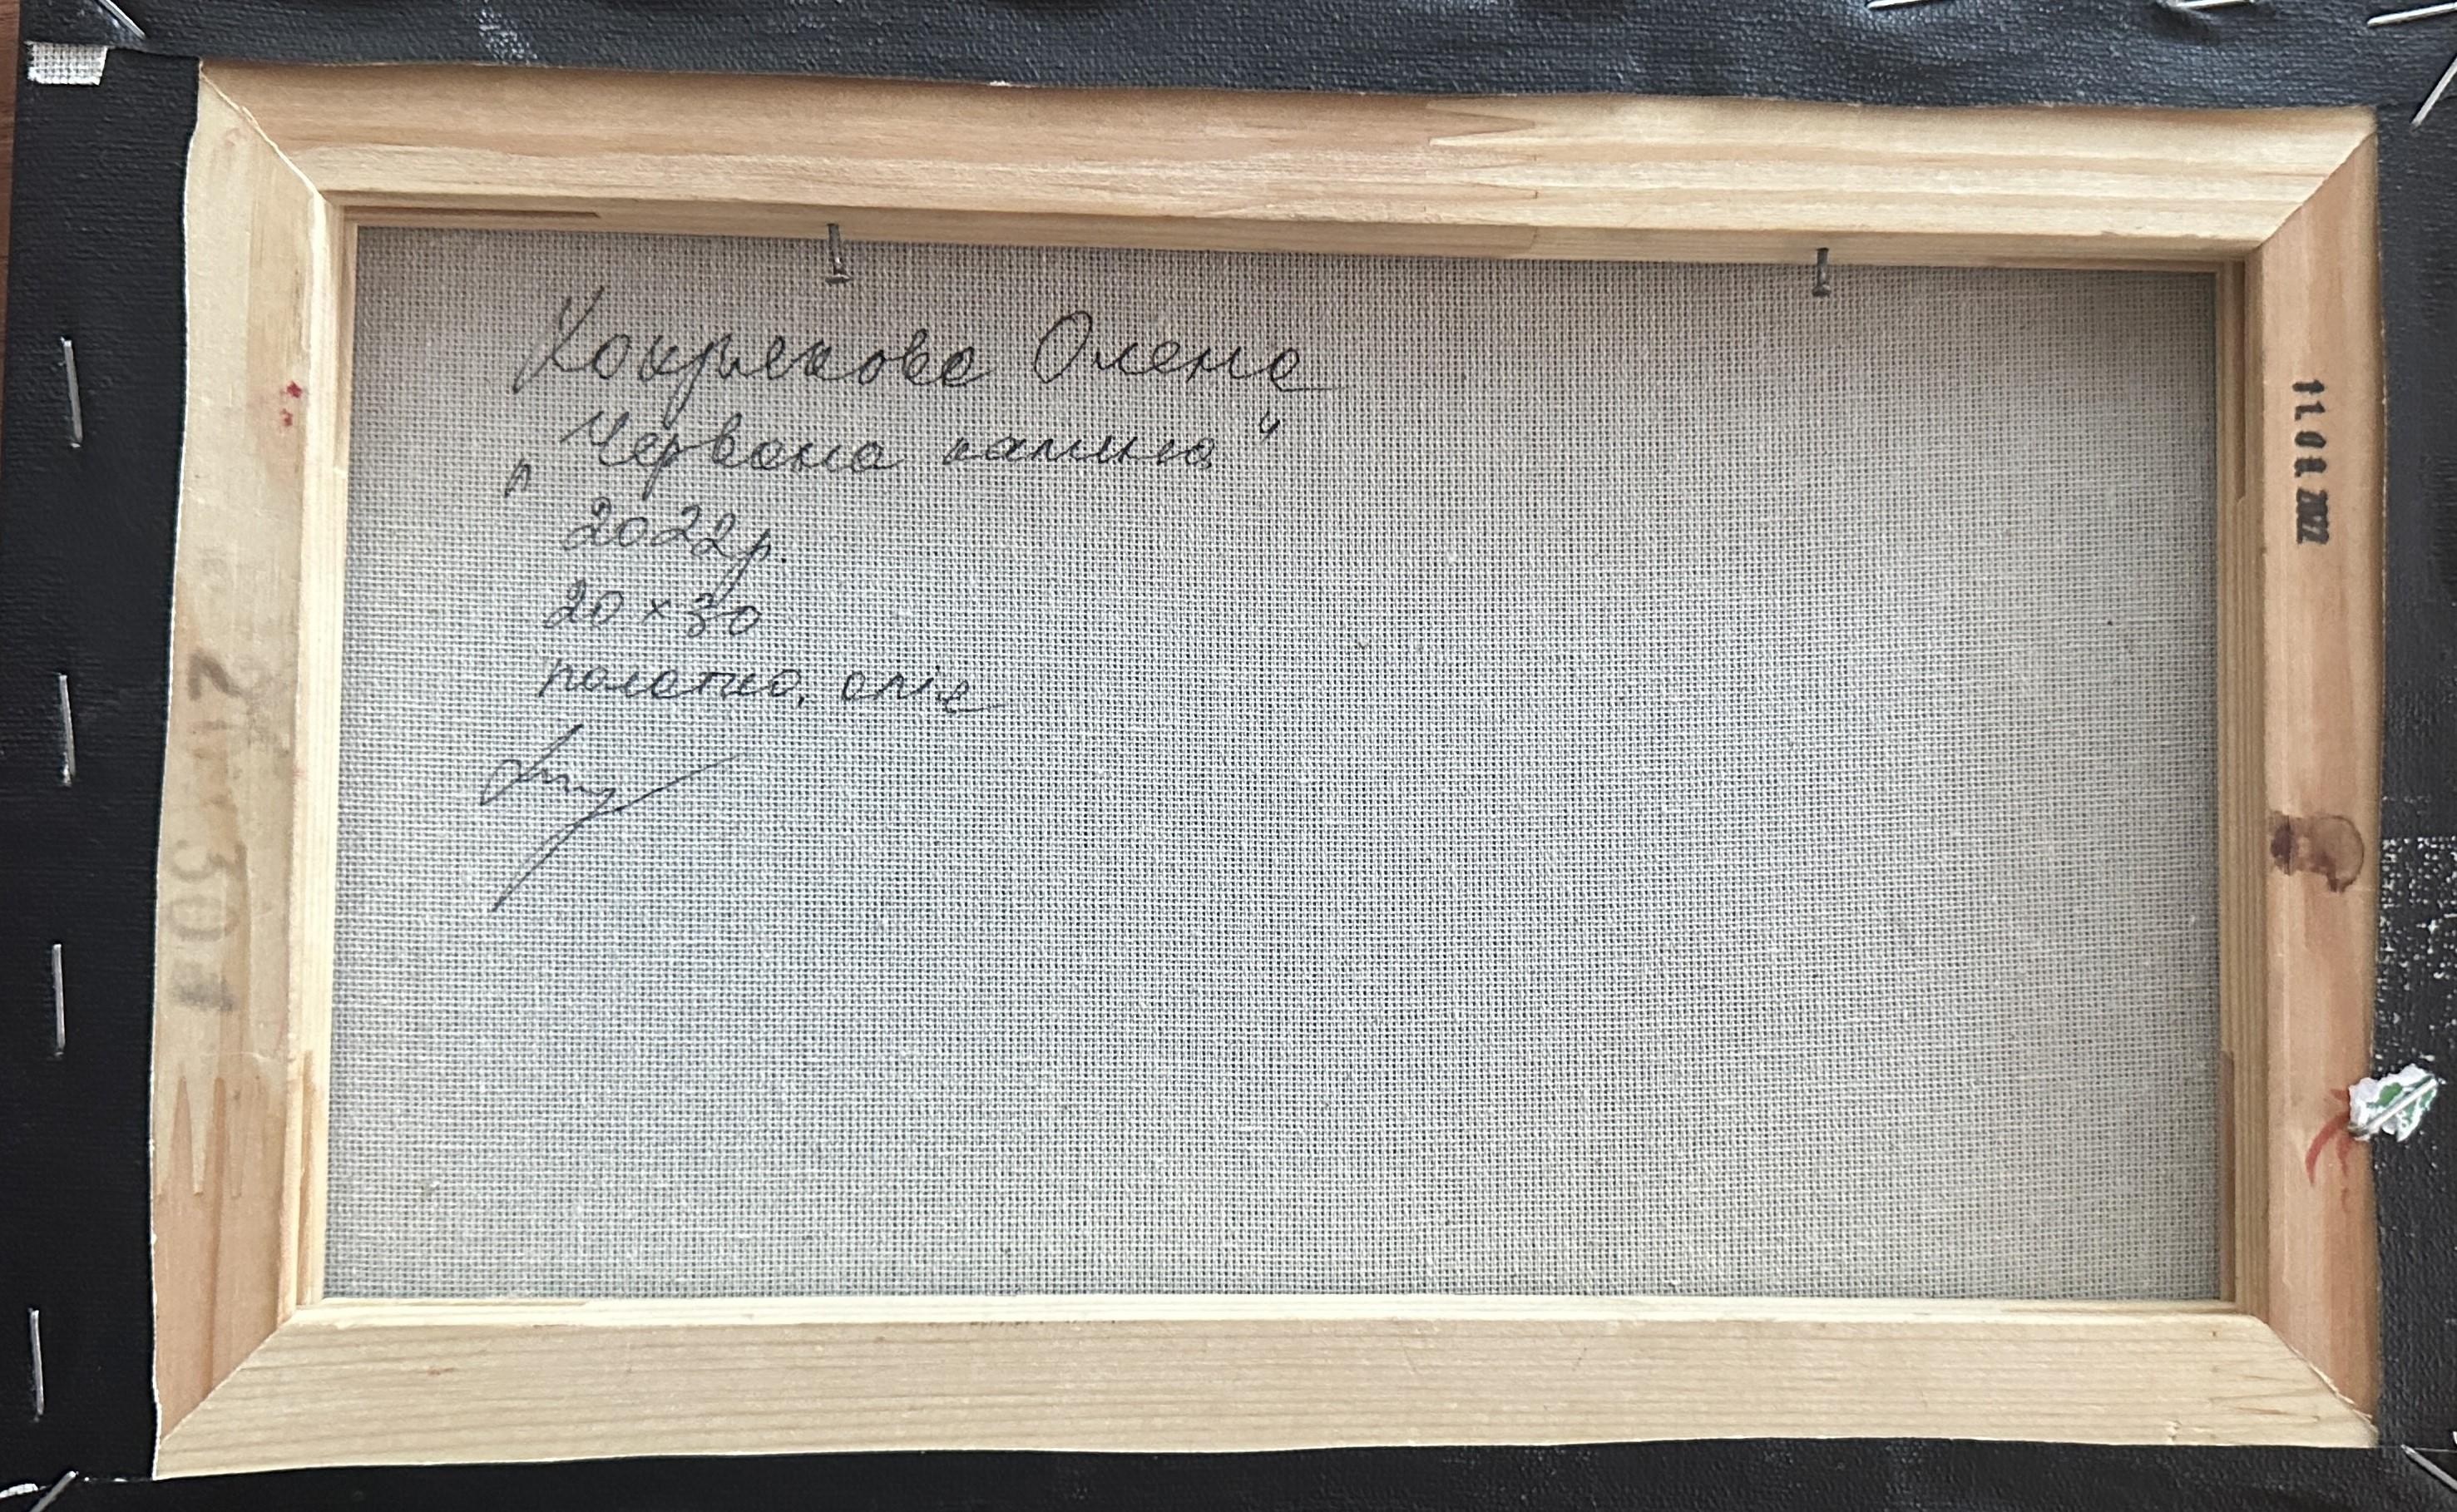 Хохрякова Олена
„Червона калина"
2022р.
20×30
полотно, олія
11.01.2022